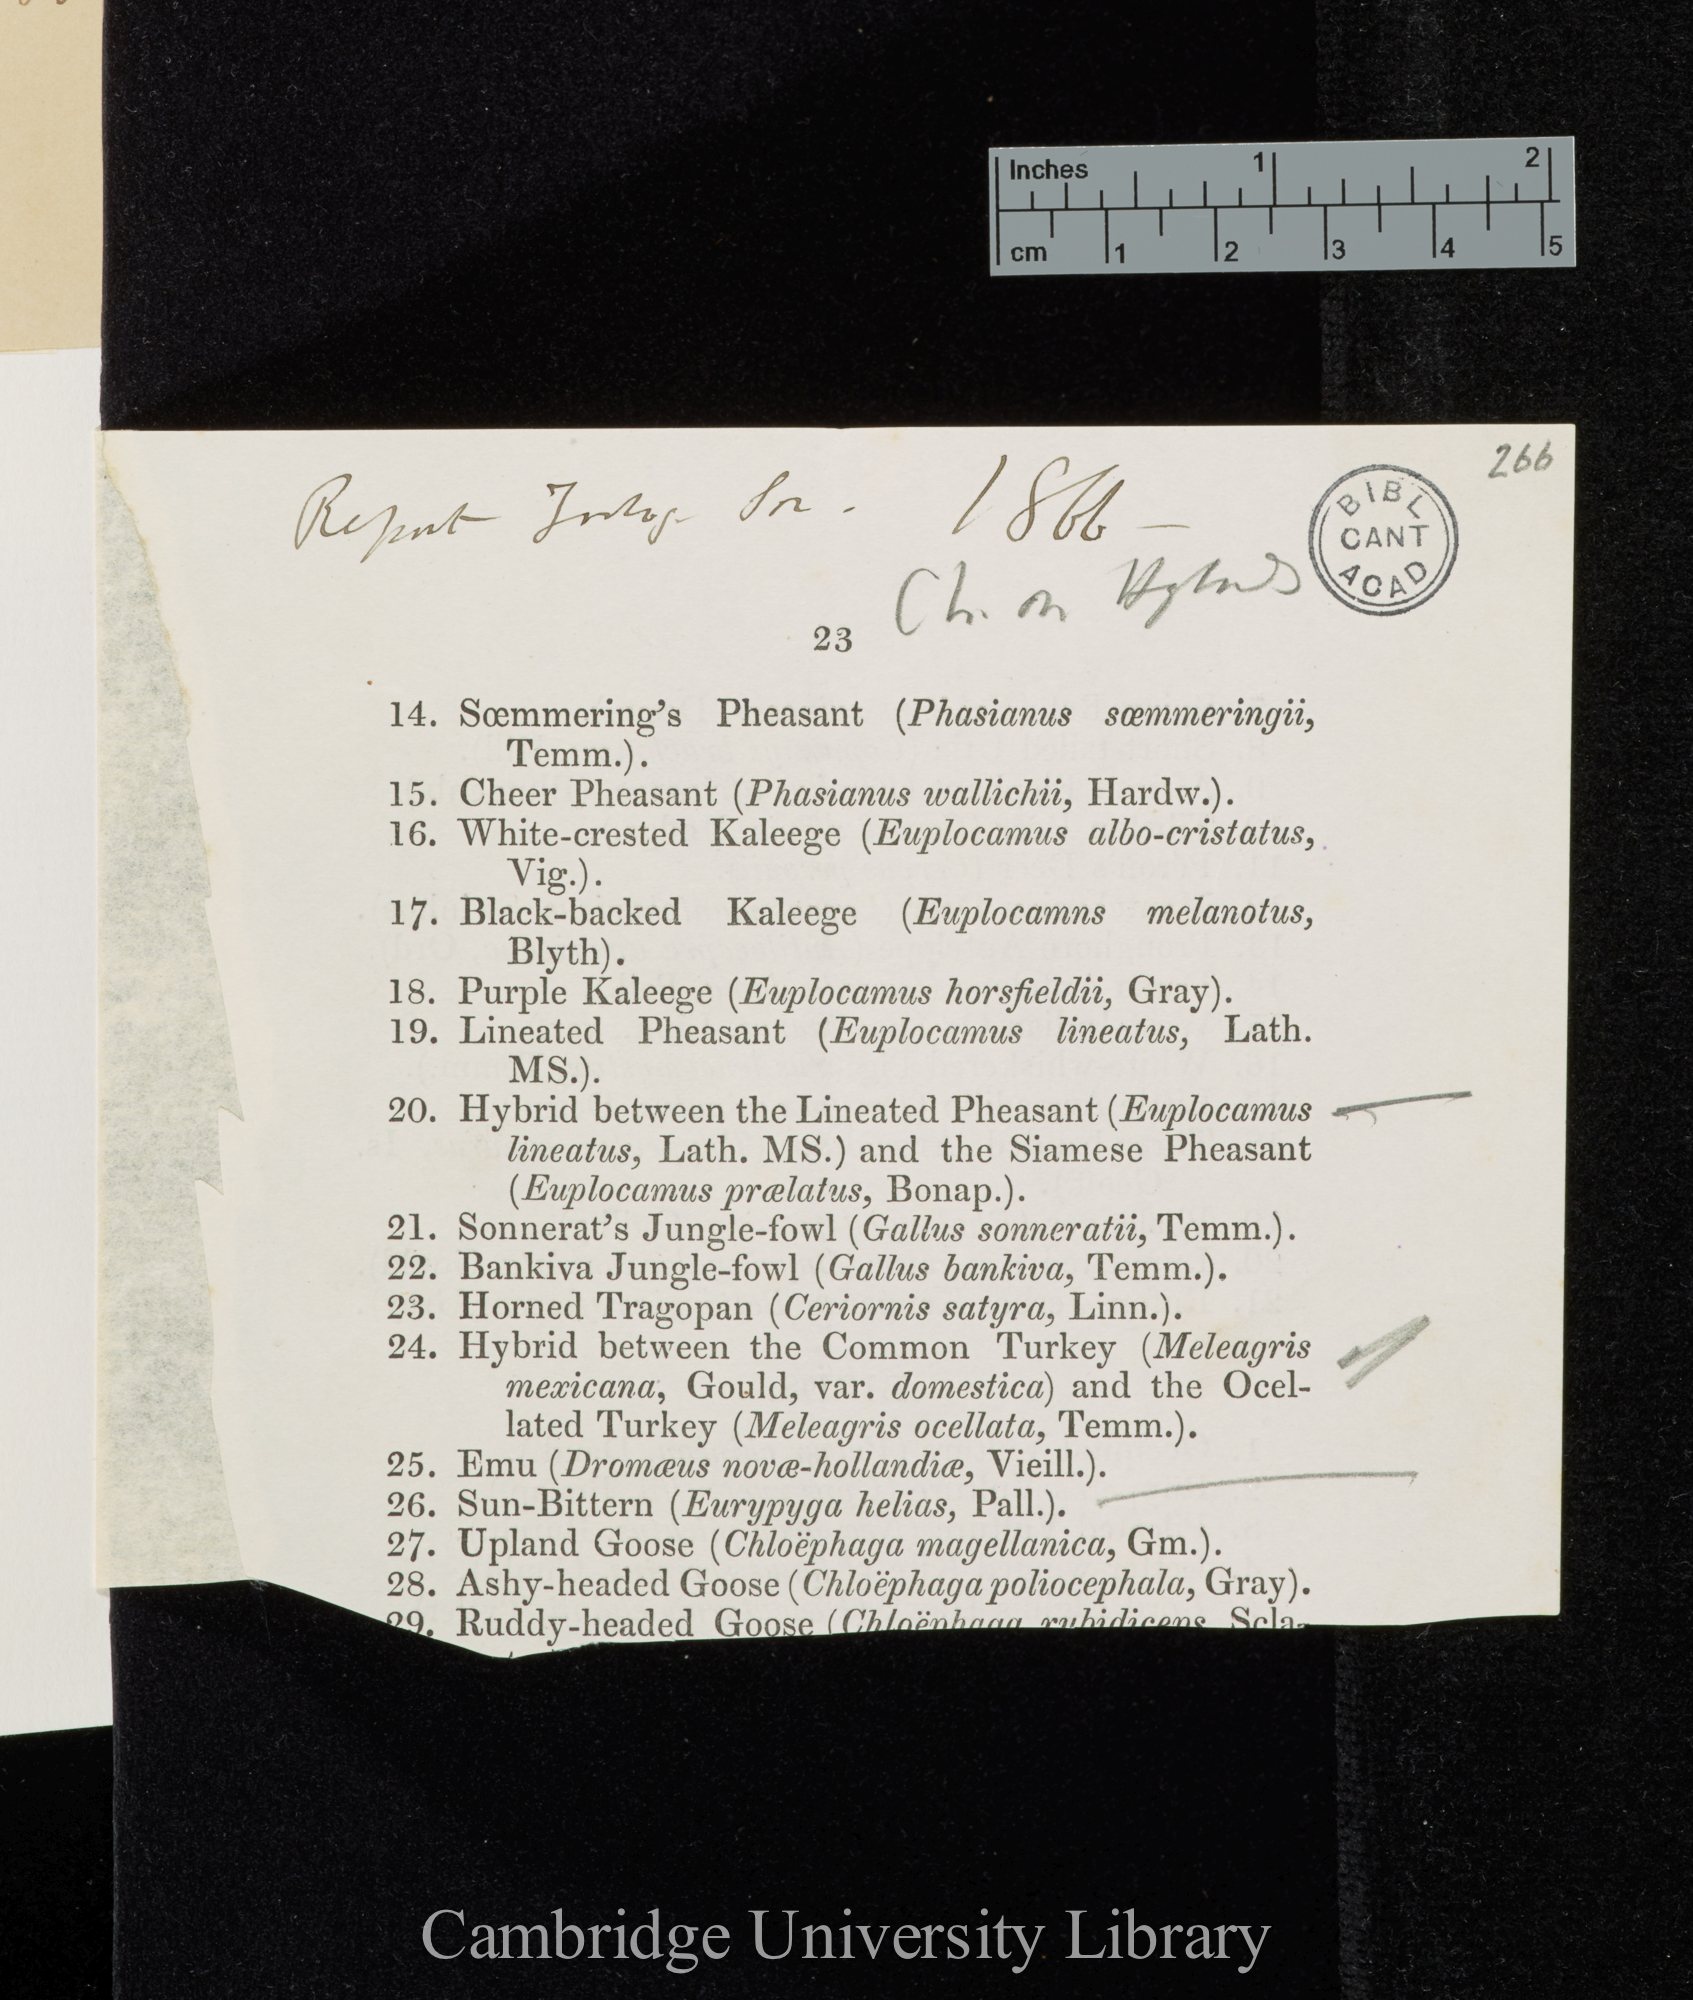 Inches 1 2
cm 1 2 3 4 5
266
Report Zoolog. Soc. 1866 —
BIBL
CANT
ACAD
Ch. on Hybrids
23
14. Sœmmering's Pheasant (Phasianus sœmmeringii,
Temm.).
15. Cheer Pheasant (Phasianus wallichii, Hardw.).
16. White-crested Kaleege (Euplocamus albo-cristatus,
Vig.).
17. Black-backed Kaleege (Euplocamns melanotus,
Blyth).
18. Purple Kaleege (Euplocamus horsfieldii, Gray).
19. Lineated Pheasant (Euplocamus lineatus, Lath.
MS.).
20. Hybrid between the Lineated Pheasant (Euplocamus
lineatus, Lath. MS.) and the Siamese Pheasant
(Euplocamus prælatus, Bonap.).
21. Sonnerat's Jungle-fowl (Gallus sonneratii, Temm.).
22. Bankiva Jungle-fowl (Gallus bankiva, Temm.).
23. Horned Tragopan (Ceriornis satyra, Linn.).
24. Hybrid between the Common Turkey (Meleagris
mexicana, Gould, var. domestica) and the Ocel-
lated Turkey (Meleagris ocellata, Temm.).
25. Emu (Dromæus novæ-hollandiæ, Vieill.).
26. Sun-Bittern (Eurypyga helias, Pall.).
27. Upland Goose (Chloëphaga magellanica, Gm.).
28. Ashy-headed Goose (Chloëphaga poliocephala, Gray).
29. Ruddy-headed Goose (Chloëphaga rubidiceps, Scla-
Cambridge University Library